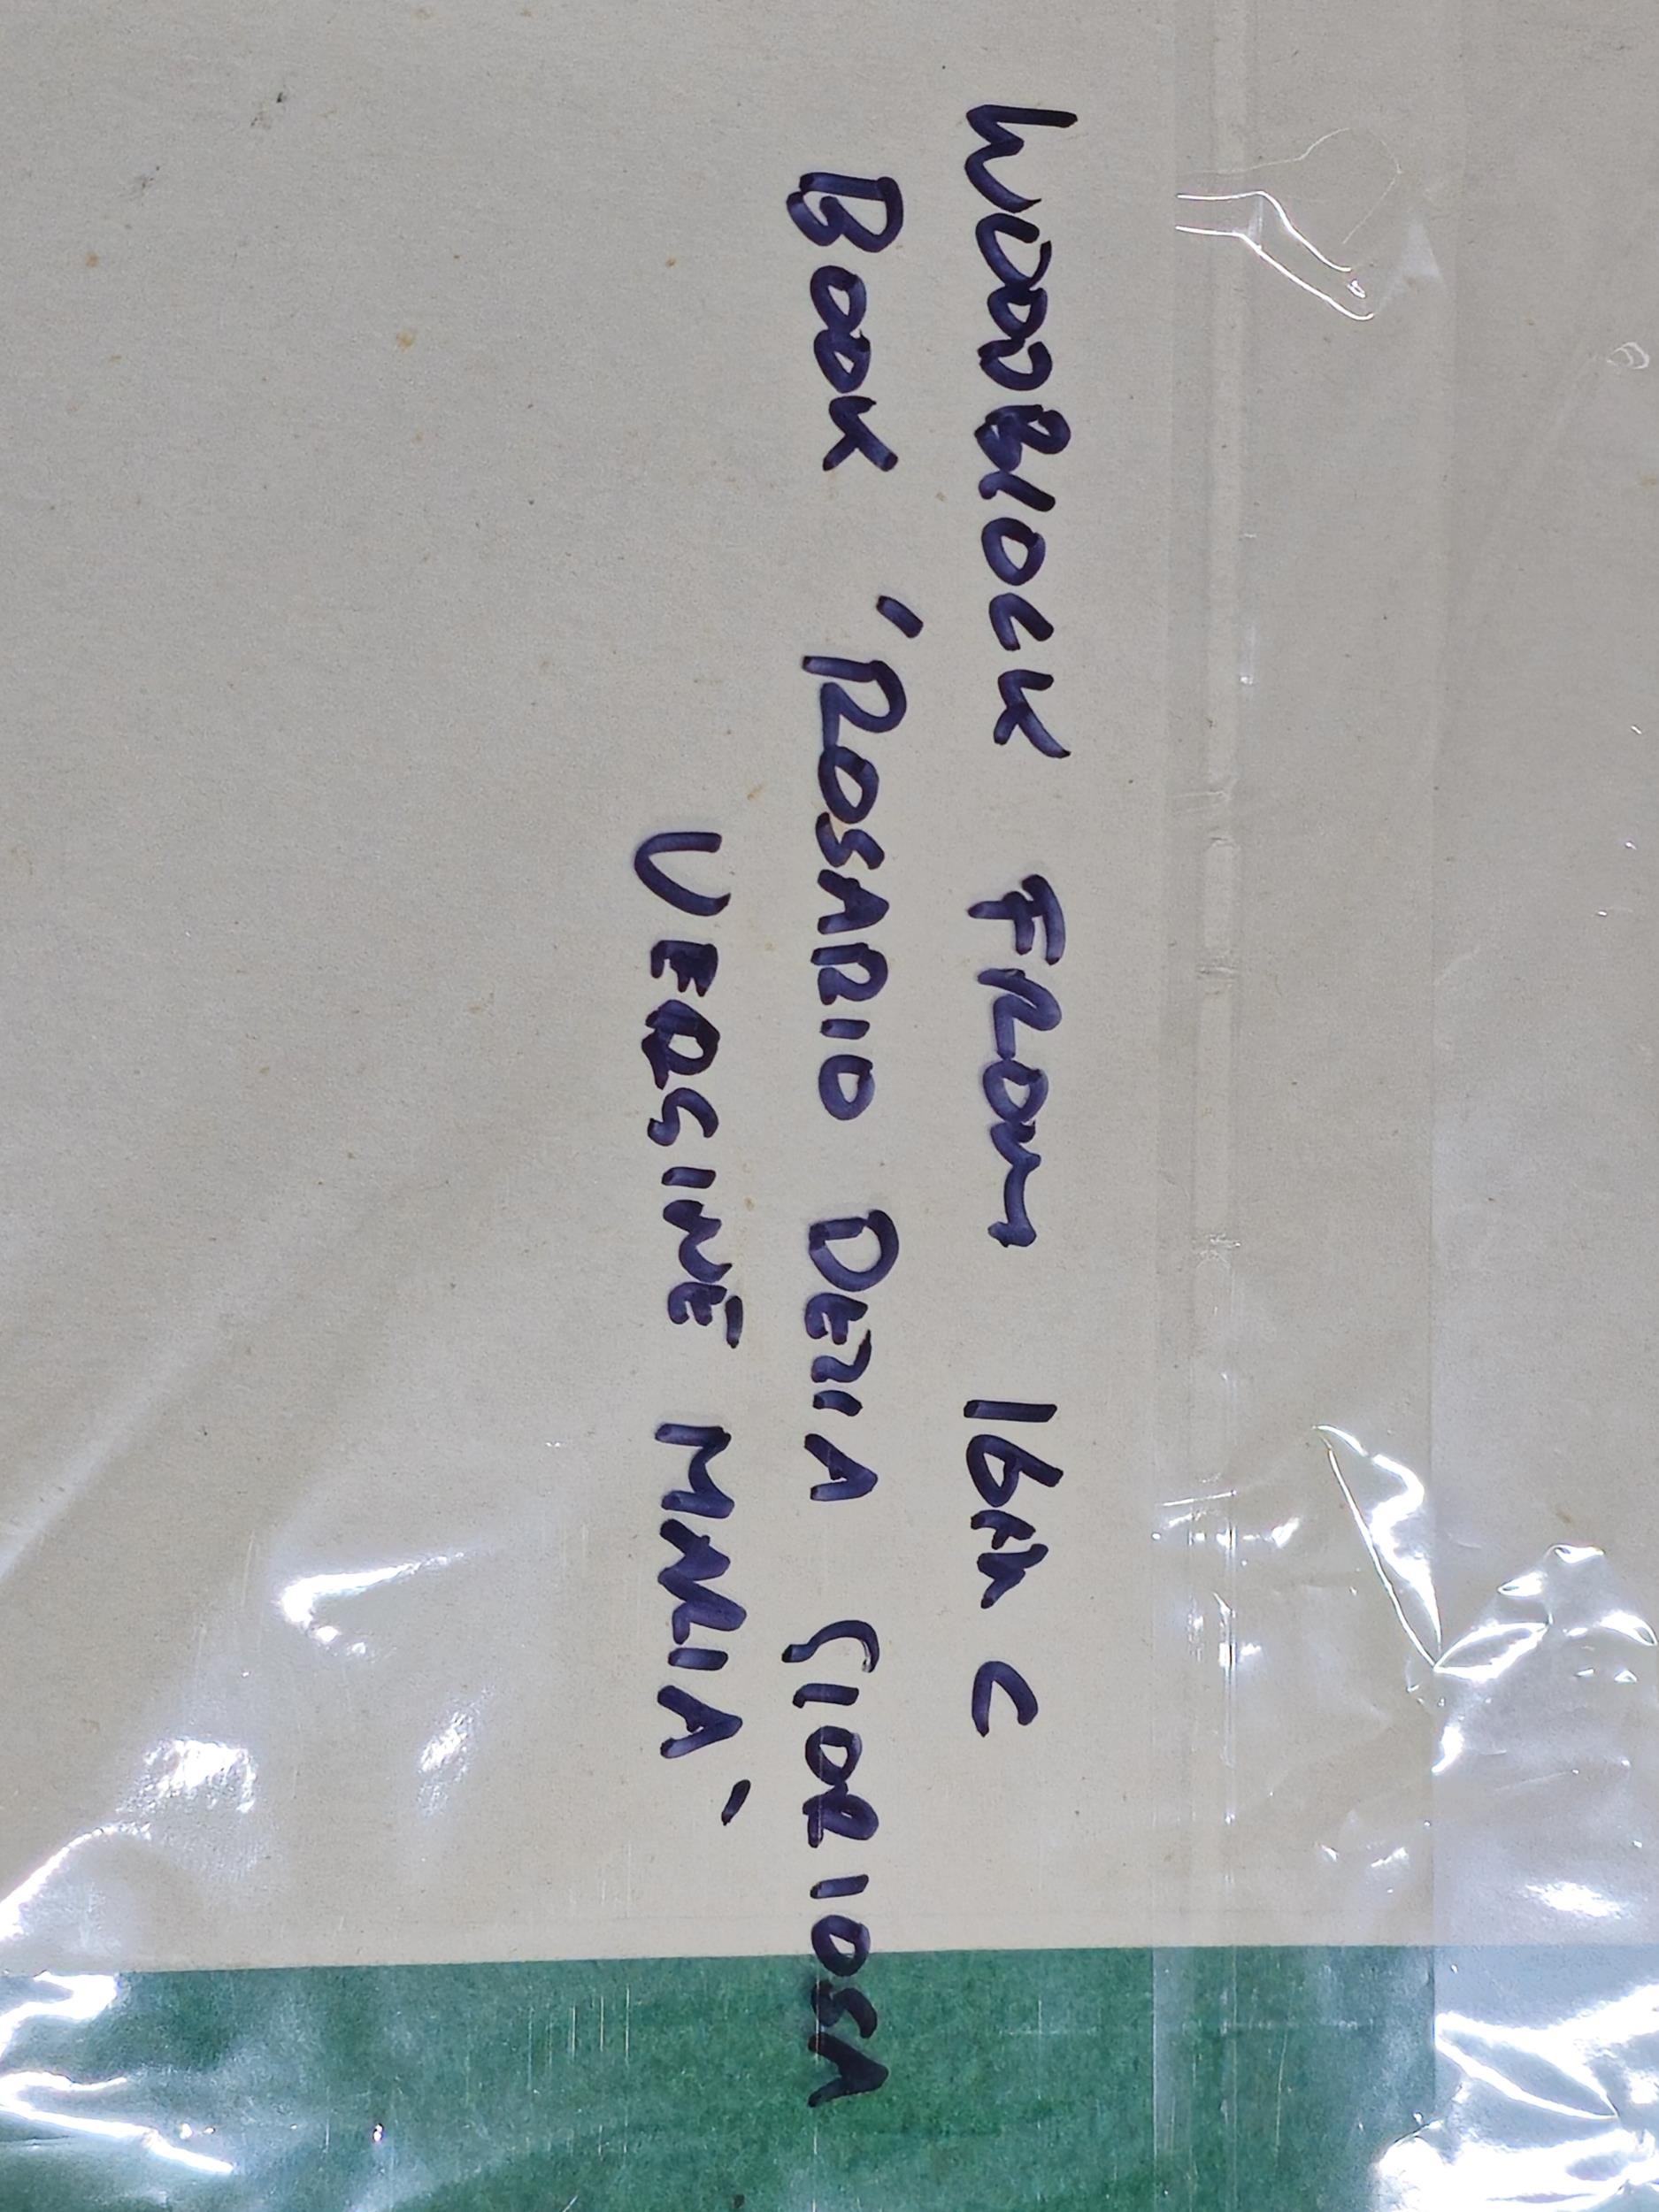 WOODBlOCK FROM 16TH C
BOOK 'ROSARIO DEllA GlORIOSA
VERGINE MARIA'